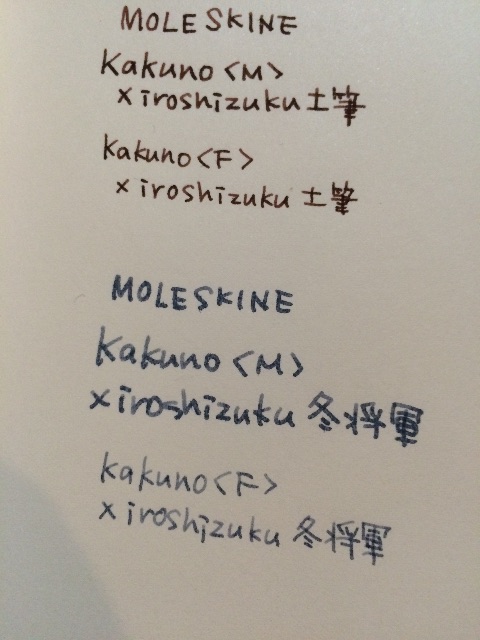 MOLESKINE
Kakuno <M>
× iroshizuku 土筆
Kakuno <F>
× iroshizuku 土筆
MOLESKINE
Kakuno <M>
× iroshizuku 冬将軍
Kakuno <F>
× iroshizuku 冬将軍